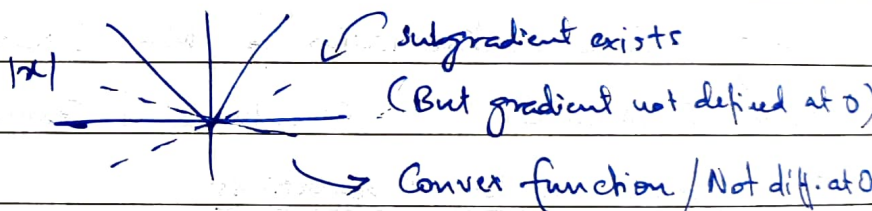 subgradient exists
|x|
(But gradient not defined at 0)
Convex function / Not diff. at 0